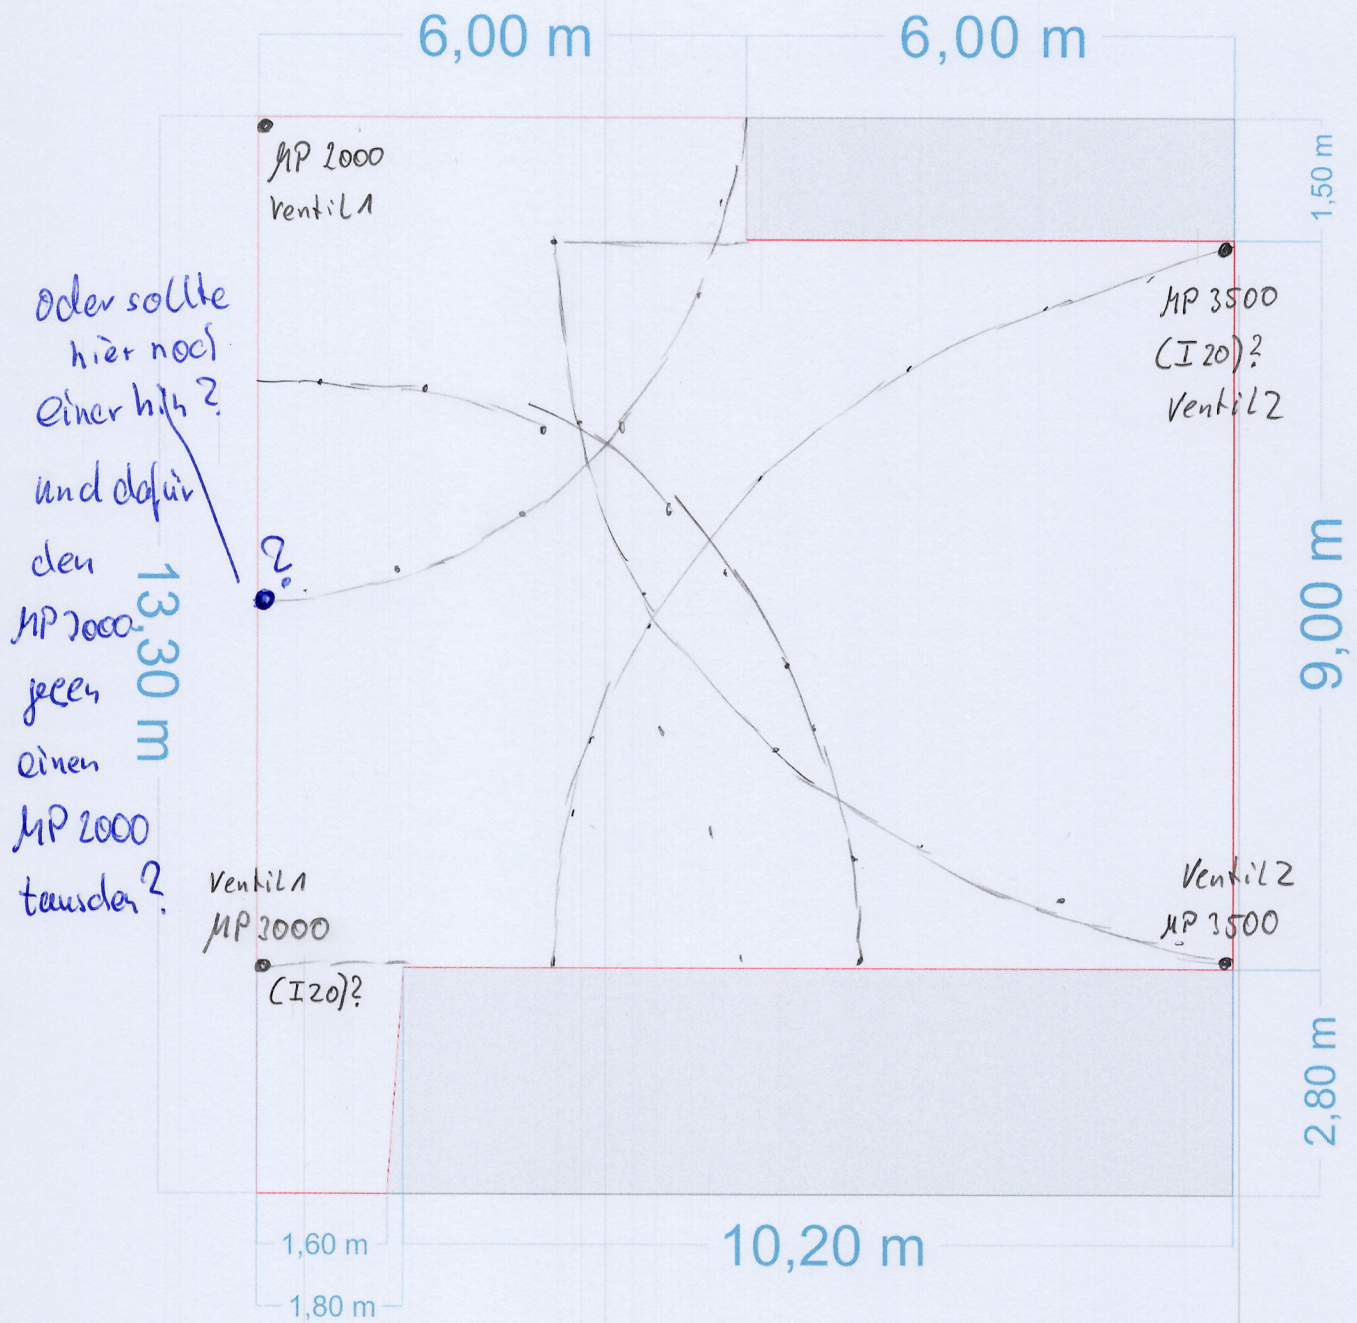 6,00 m
6,00 m
1,50 m
MP 2000
Ventil 1
oder sollte
hier noch
einer hin?
und dafür
den
MP 3000
gegen
einen
MP 2000
tauschen?
?
MP 3500
(I20)?
Ventil 2
13,30 m
9,00 m
Ventil 1
MP 3000
(I20)?
Ventil 2
MP 3500
2,80 m
1,60 m
10,20 m
1,80 m